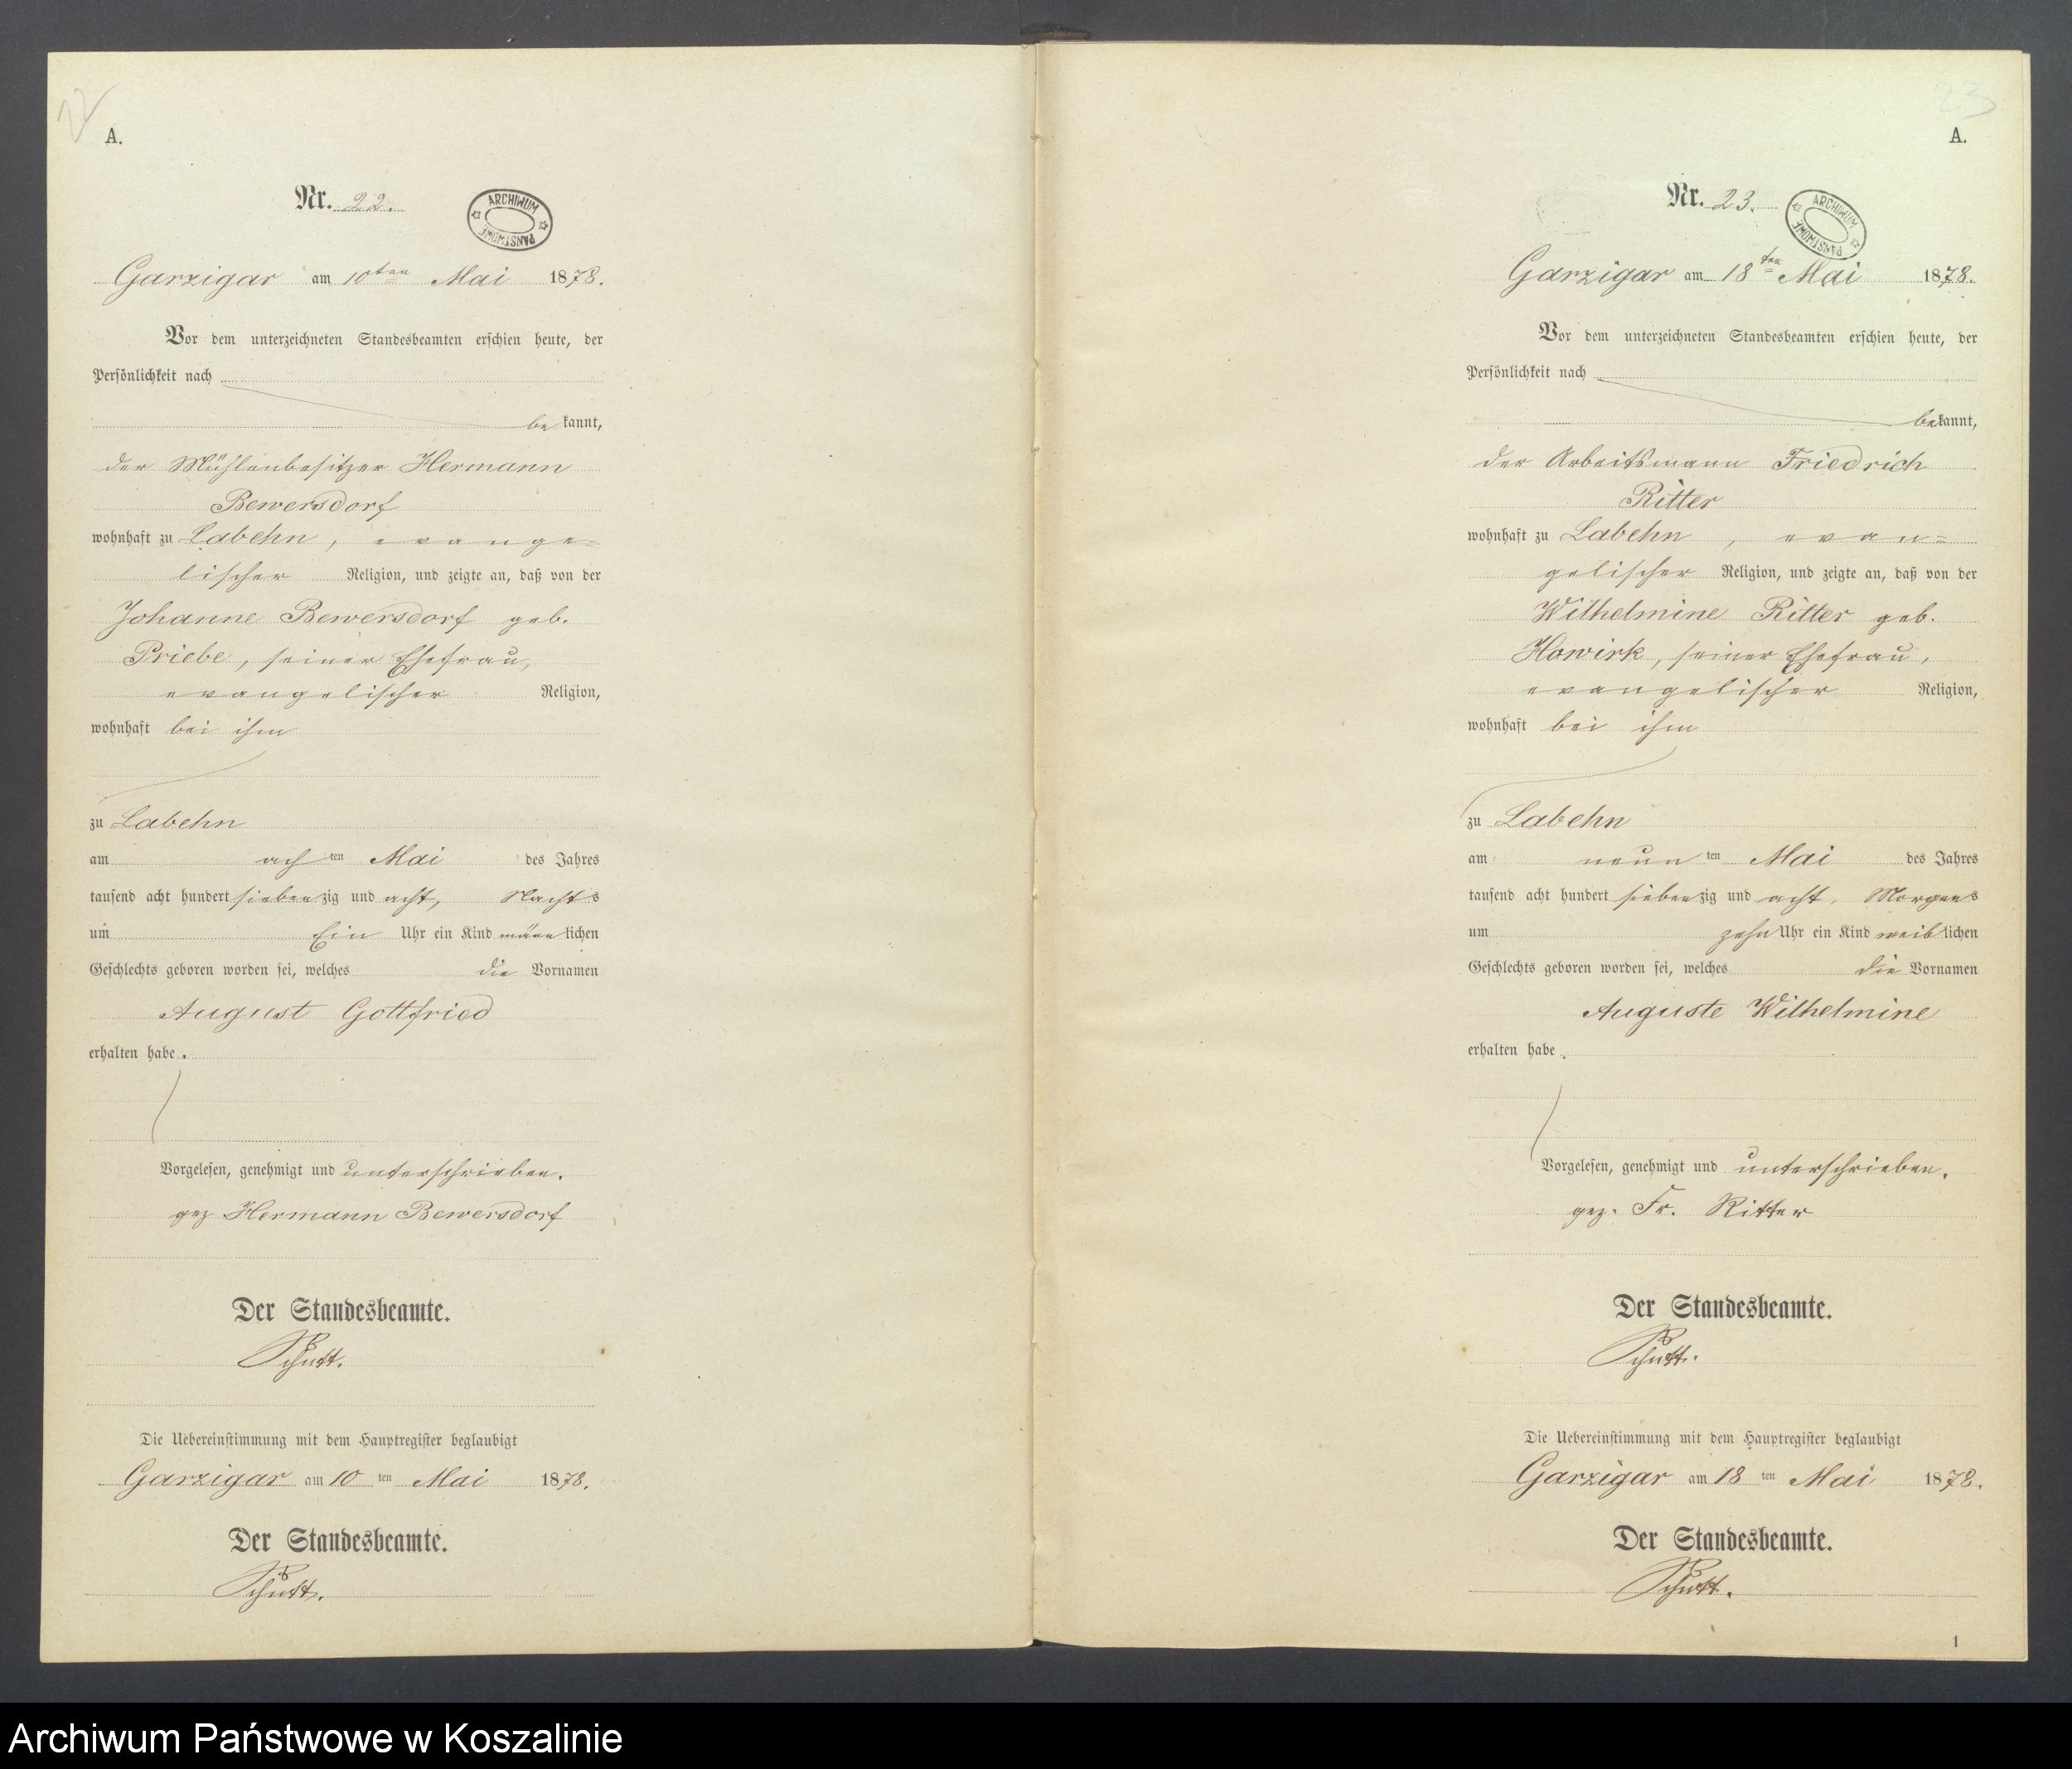 22
A.
Nr. 22.
ARCHIWUM
PAŃSTWOWE
Garzigar am 10ten Mai 1878.
Vor dem unterzeichneten Standesbeamten erschien heute, der
Persönlichkeit nach
bekannt,
der Mühlenbesitzer Hermann
Bewersdorf
wohnhaft zu Labehn, evange=
lischer Religion, und zeigte an, daß von der
Johanne Bewersdorf geb.
Priebe, seiner Ehefrau,
evangelischer Religion,
wohnhaft bei ihm
zu Labehn
am achten Mai des Jahres
tausend acht hundert siebenzig und acht, Nachts
um Ein Uhr ein Kind männlichen
Geschlechts geboren worden sei, welches die Vornamen
August Gottfried
erhalten habe.
Vorgelesen, genehmigt und unterschrieben.
gez Hermann Bewersdorf
Der Standesbeamte.
Schutt.
Die Uebereinstimmung mit dem Hauptregister beglaubigt
Garzigar am 10ten Mai 1878.
Der Standesbeamte.
Schutt.
23
A.
Nr. 23.
ARCHIWUM
PAŃSTWOWE
Garzigar am 18ten Mai 1878.
Vor dem unterzeichneten Standesbeamten erschien heute, der
Persönlichkeit nach
bekannt,
der Arbeitsmann Friedrich
Ritter
wohnhaft zu Labehn, evan=
gelischer Religion, und zeigte an, daß von der
Wilhelmine Ritter geb.
Howirk, seiner Ehefrau,
evangelischer Religion,
wohnhaft bei ihm
zu Labehn
am neunten Mai des Jahres
tausend acht hundert siebenzig und acht, Morgens
um zehn Uhr ein Kind weiblichen
Geschlechts geboren worden sei, welches die Vornamen
Auguste Wilhelmine
erhalten habe.
Vorgelesen, genehmigt und unterschrieben.
gez. Fr. Ritter
Der Standesbeamte.
Schutt.
Die Uebereinstimmung mit dem Hauptregister beglaubigt
Garzigar am 18ten Mai 1878.
Der Standesbeamte.
Schutt.
1
Archiwum Państwowe w Koszalinie